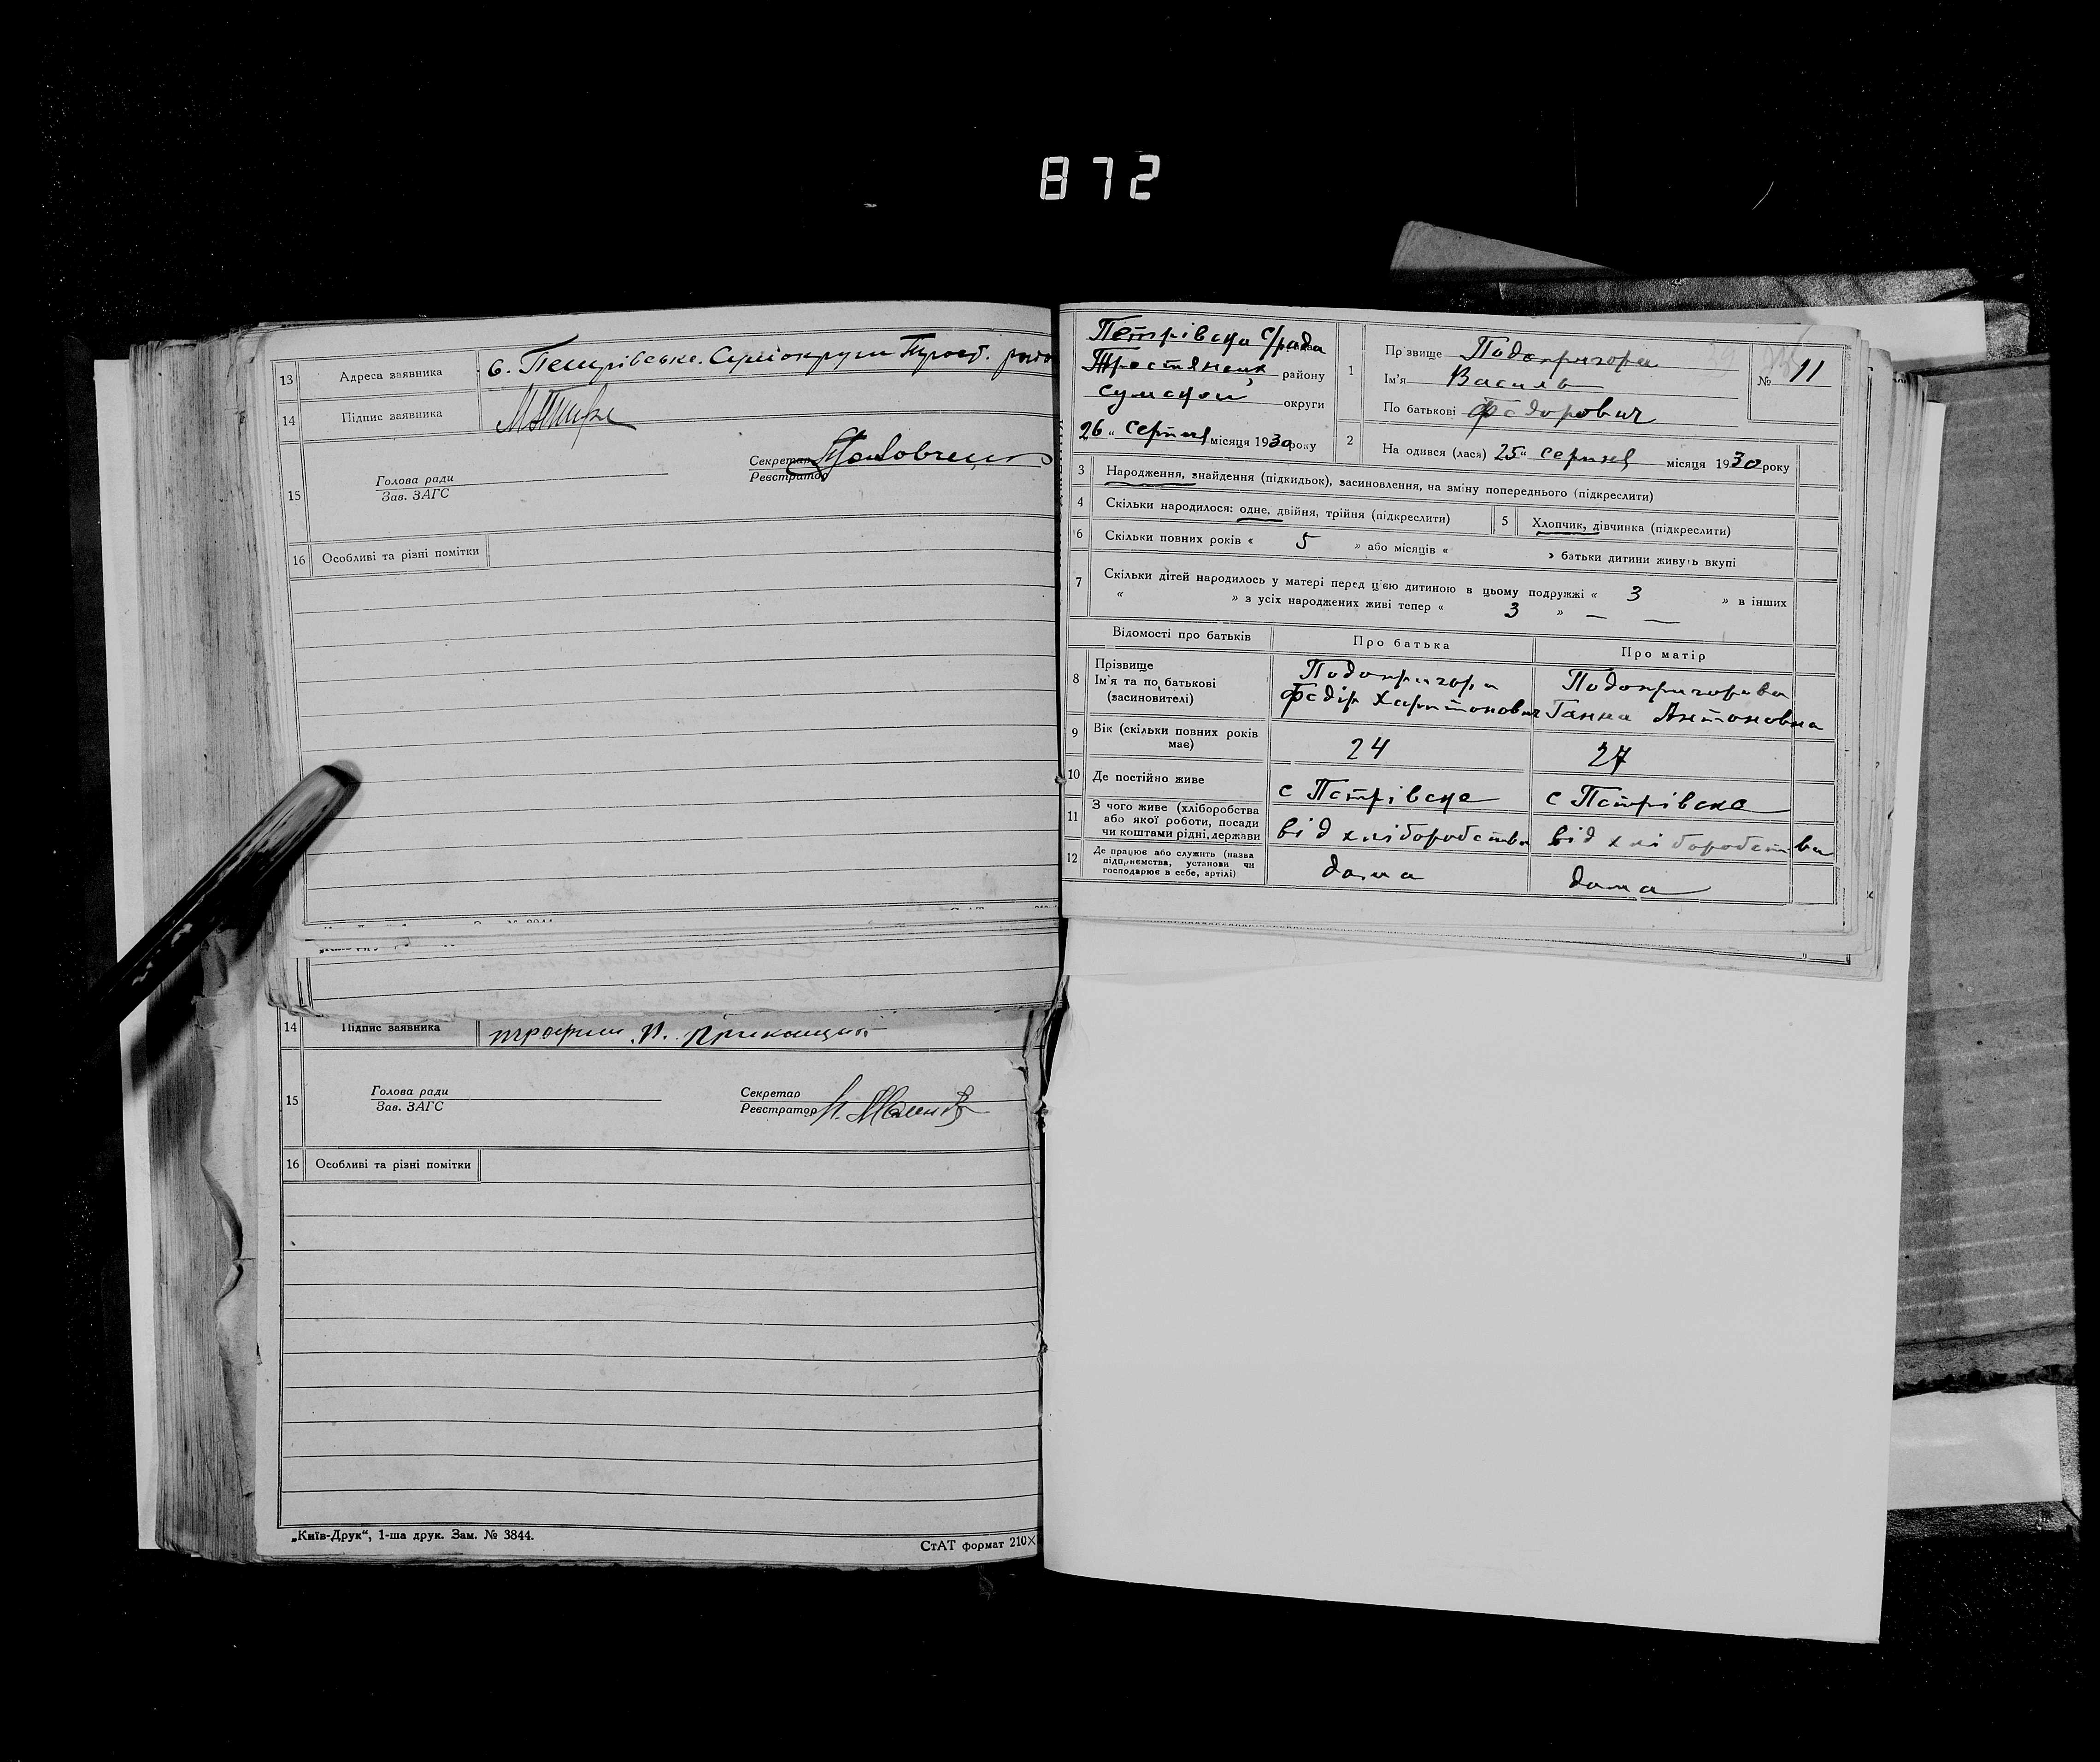 872
13 Адреса заявника с. Петрівське. Суміокруги Трост. райо
14 Підпис заявника
15 Голова ради
Зав. ЗАГС
Секретар
Реєстратор
16 Особливі та різні помітки
14 Підпис заявника трофим П.
15 Голова ради
Зав. ЗАГС
Секретар
Реєстратор
16 Особливі та різні помітки
„Київ-Друк“, 1-ша друк. Зам. № 3844.
СтАТ формат 210×
Петрівска с/рада
Тростянецк району
сумскои округи
26 „ серпня місяця 1930 року
1 Прізвище Подопригора
Ім'я Василь
По батькові Федорович
№ 11
2 На одився (лася) 25 „ серпня місяця 1930 року
3 Народження, знайдення (підкидьок), засиновлення, на зміну попереднього (підкреслити)
4 Скільки народилося: одне, двійня, трійня (підкреслити)
5 Хлопчик, дівчинка (підкреслити)
6 Скільки повних років « 5 » або місяців « » батьки дитини живуть вкупі
7 Скільки дітей народилось у матері перед цією дитиною в цьому подружжі « 3 » в інших
« » з усіх народжених живі тепер « 3 » — —
Відомості про батьків Про батька Про матір
8 Прізвище
Ім'я та по батькові
(засиновителі)
Подопригора
Федір Харитонович
Подопригорива
Ганна Антоновна
9 Вік (скільки повних років
має)
24 27
10 Де постійно живе с Петрівске с Петрівске
11 З чого живе (хліборобства
або якої роботи, посади
чи коштами рідні, держави
від хліборобства від хліборобства
12 Де працює або служить (назва
підприємства, установи чи
господарює в себе, артілі)
дома дома